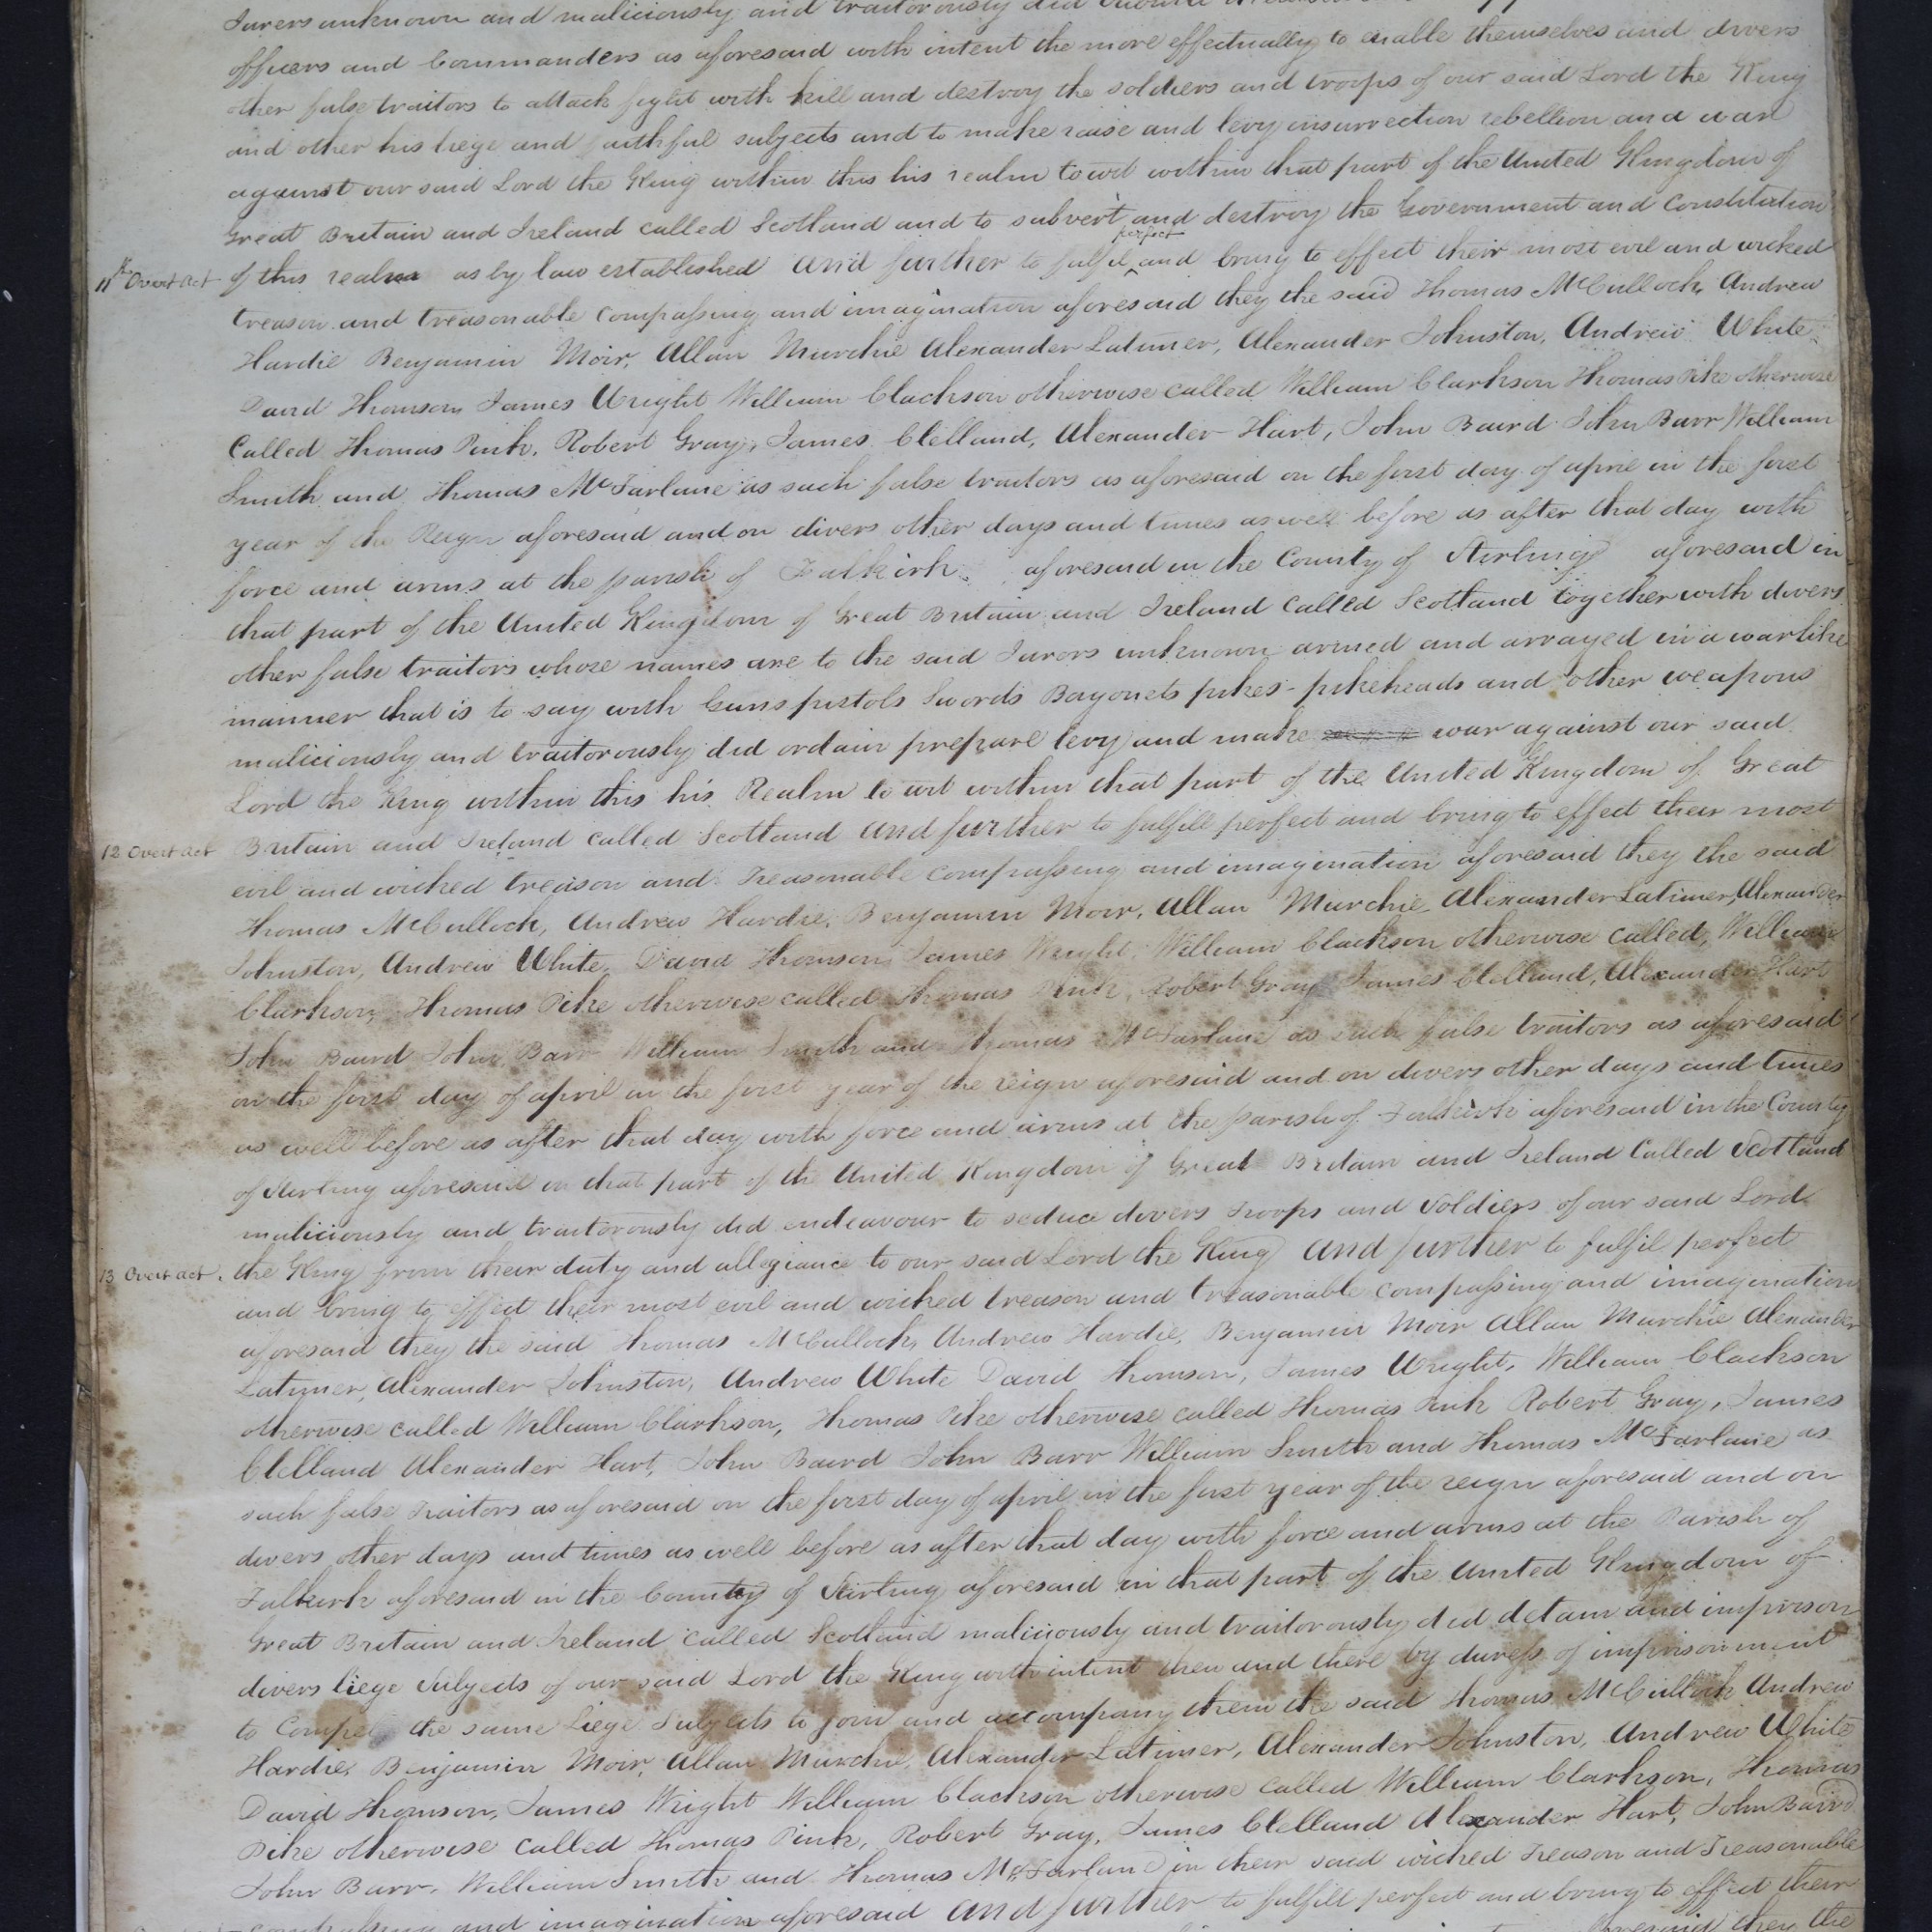 Jurors unknown and maliciously and traitorously did
officers and Commanders as aforesaid with intent the more effectually to enable themselves and divers
other false traitors to attack fight with kill and destroy the soldiers and troops of our said Lord the King
and other his liege and faithful subjects and to make raise and levy insurrection rebellion and war
against our said Lord the King within this his realm to wit within that part of the United Kingdom of
Great Britain and Ireland called Scotland and to subvert and destroy the Government and Constitution
11th Overt act of this realm as by law established and further to fulfil perfect and bring to effect their most evil and wicked
treason and treasonable compassing and imagination aforesaid they the said Thomas McCulloch, Andrew
Hardie Benjamin Moir, Allan Murchie Alexander Latimer, Alexander Johnston, Andrew White,
David Thomson James Wright William Clackson otherwise called William Clarkson Thomas Pike otherwise
Called Thomas Pink, Robert Gray, James Clelland, Alexander Hart, John Baird John Barr William
Smith and Thomas McFarlane as such false traitors as aforesaid on the first day of april in the first
year of the Reign aforesaid and on divers other days and times as well before as after that day with
force and arms at the parish of Falkirk aforesaid in the County of Stirling aforesaid in
that part of the United Kingdom of Great Britain and Ireland called Scotland together with divers
other false traitors whose names are to the said Jurors unknown armed and arrayed in a warlike
manner that is to say with Guns pistols Swords Bayonets pikes - pikeheads and other weapons
maliciously and traitorously did ordain prepare levy and make war against our said
Lord the King within this his Realm to wit within that part of the United Kingdom of Great
12 Overt act Britain and Ireland called Scotland and further to fulfill perfect and bring to effect their most
evil and wicked treason and treasonable compassing and imagination aforesaid they the said
Thomas McCulloch, Andrew Hardie, Benjamin Moir, Allan Murchie Alexander Latimer, Alexander
Johnston, Andrew White, David Thomson James Wright, William Clackson otherwise called, William
Clarkson, Thomas Pike otherwise called Thomas Pink, Robert Gray James Clelland, Alexander Hart
John Baird John Barr William Smith and Thomas McFarlane as such false traitors as aforesaid
on the first day of april in the first year of the reign aforesaid and on divers other days and times
as well before as after that day with force and arms at the parish of Falkirk aforesaid in the County
of Stirling aforesaid in that part of the United Kingdom of Great Britain and Ireland Called Scotland
maliciously and traitorously did endeavour to seduce divers troops and Soldiers of our said Lord
13 Overt act. the King from their duty and allegiance to our said Lord the King and further to fulfil perfect
and bring to effect their most evil and wicked treason and treasonable compassing and imagination
aforesaid they the said Thomas McCulloch, Andrew Hardie, Benjamin Moir Allan Murchie Alexander
Latimer, Alexander Johnston, Andrew White David Thomson, James Wright, William Clackson
otherwise called William Clarkson, Thomas Pike otherwise called Thomas Pink Robert Gray, James
Clelland Alexander Hart, John Baird John Barr William Smith and Thomas McFarlane as
such false traitors as aforesaid on the first day of april in the first year of the reign aforesaid and on
divers other days and times as well before as after that day with force and arms at the Parish of
Falkirk aforesaid in the County of Stirling aforesaid in that part of the United Kingdom of
Great Britain and Ireland called Scotland maliciously and traitorously did detain and imprison
divers liege Subjects of our said Lord the King with intent then and there by duress of imprisonment
to Compel the same Liege Subjects to join and accompany them the said Thomas McCulloch Andrew
Hardie, Benjamin Moir, Allan Murchie, Alexander Latimer, Alexander Johnston, Andrew White
David Thomson, James Wright William Clackson otherwise called William Clarkson, Thomas
Pike otherwise called Thomas Pink, Robert Gray, James Clelland Alexander Hart, John Baird
John Barr, William Smith and Thomas McFarlane in their said wicked treason and treasonable
compassing and imagination aforesaid and further to fulfill perfect and bring to effect their
aforesaid they the